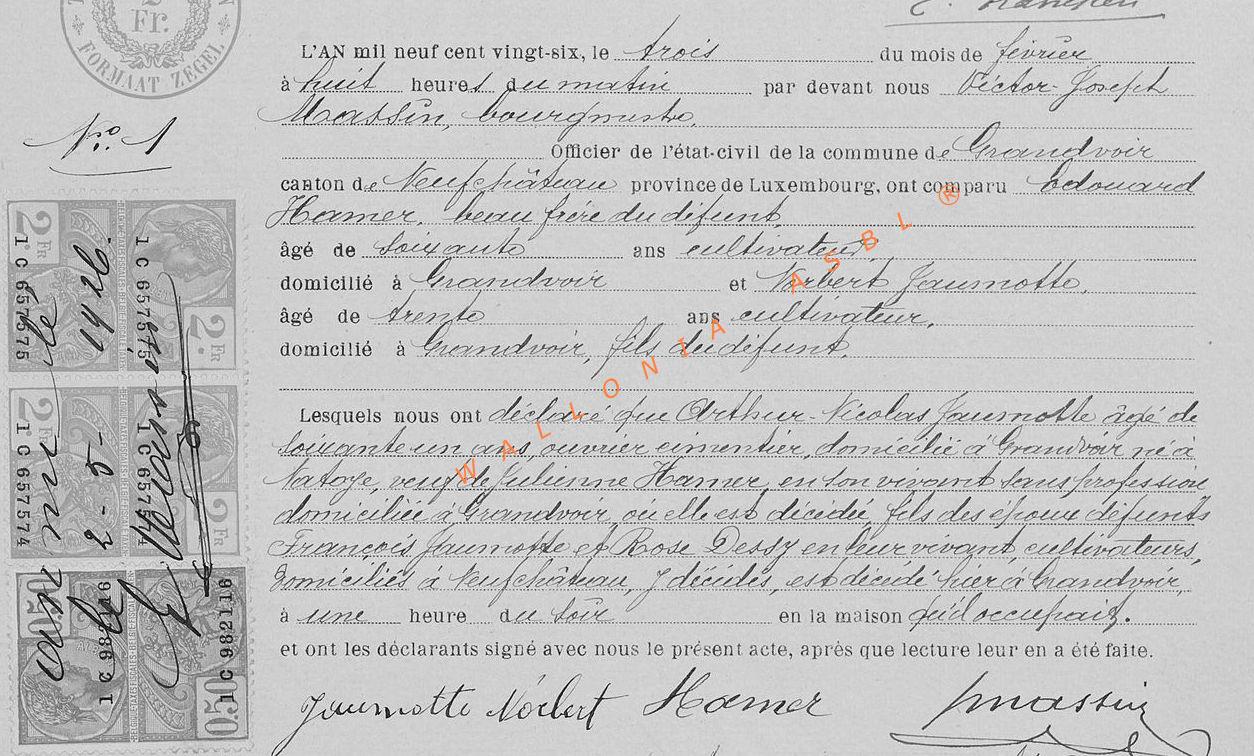 2 Fr.
FORMAAT ZEGEL
N° 1
L'AN mil neuf cent vingt-six, le trois du mois de février
à huit heures du matin par devant nous Victor-Joseph
Massin, bourgmestre,
Officier de l'état-civil de la commune de Grandvoir
canton de Neufchâteau province de Luxembourg, ont comparu Edouard
Hamer, beau frère du défunt,
âgé de soixante ans cultivateur
domicilié à Grandvoir et Norbert Jaumotte,
âgé de trente ans cultivateur,
domicilié à Grandvoir, fils du défunt,
Lesquels nous ont déclaré que Arthur-Nicolas Jaumotte âgé de
soixante un ans, ouvrier cimentier, domicilié à Grandvoir né à
Natoye, veuf de Julienne Hamer, en son vivant sans profession
domiciliée à Grandvoir, où elle est décédée, fils des époux défunts
François Jaumotte et Rose Dessy en leur vivant, cultivateurs,
domiciliés à Neufchâteau, y décédés, est décédé hier à Grandvoir,
à une heure du soir en la maison qu'il occupait.
et ont les déclarants signé avec nous le présent acte, après que lecture leur en a été faite.
Jaumotte Norbert Hamer Massin
WALLONIA ASBL ®
2.Fr
1 C 657575
1 C 657575
2.Fr
2.Fr
1 C 657574
1 C 657574
2.Fr
0.50
1 C 982116
1 C 982116
0.50
1926
2-5-